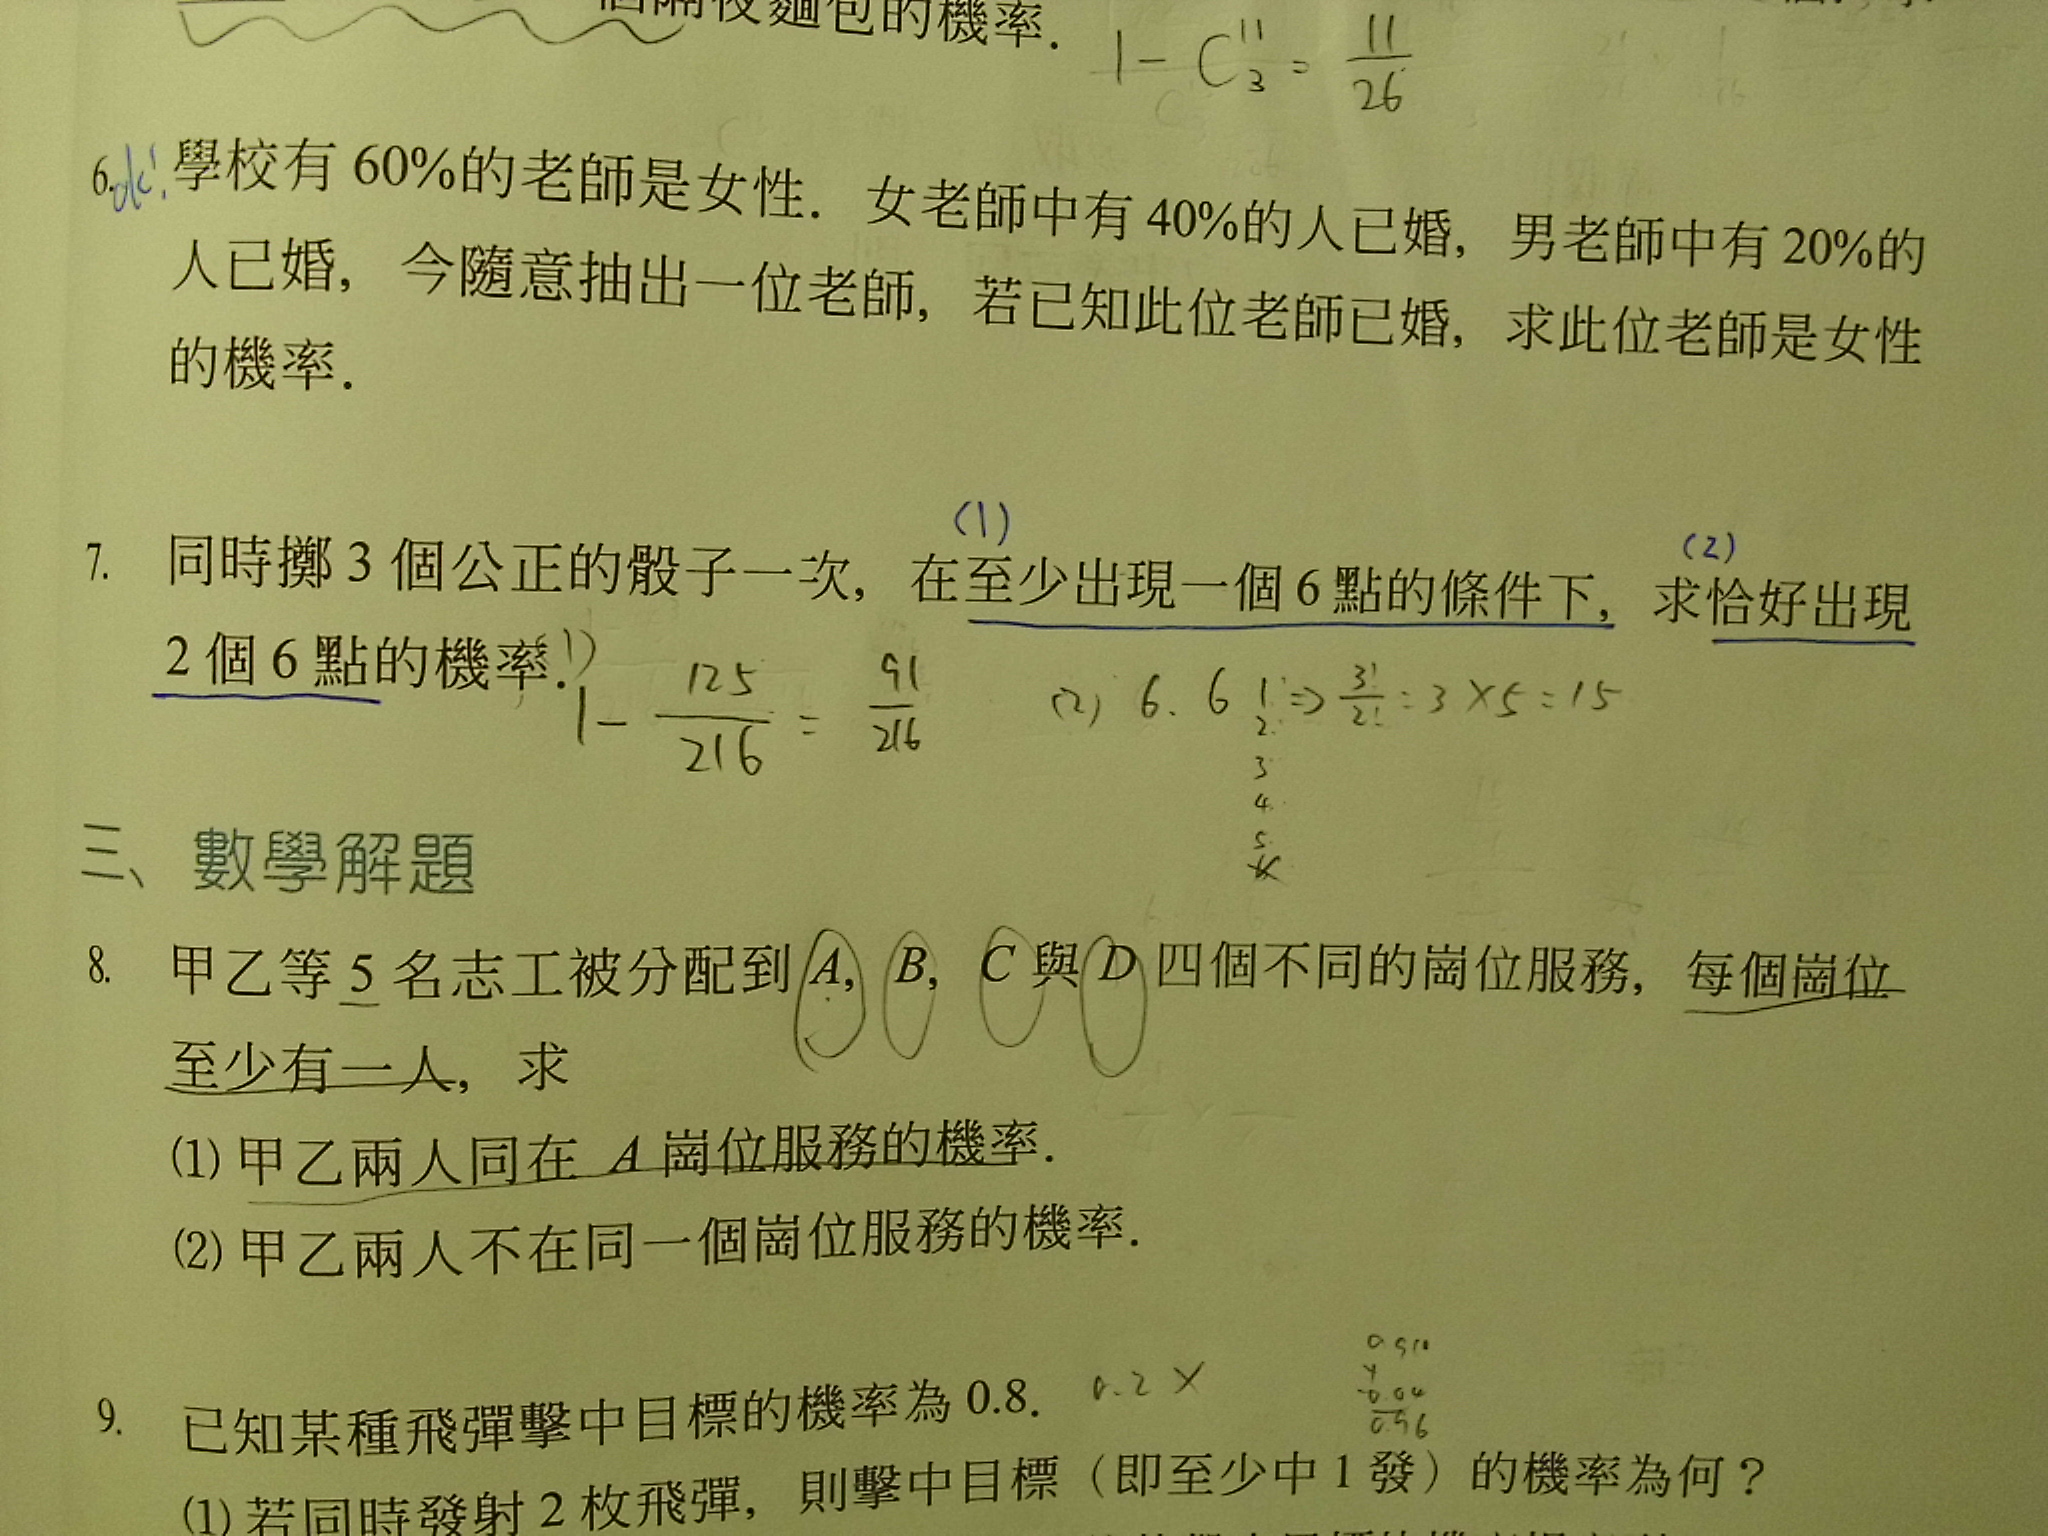 個隔夜麵包的機率.
1 - C 11 3 = 11/26
6. ok! 學校有 60%的老師是女性. 女老師中有 40%的人已婚, 男老師中有 20%的
人已婚, 今隨意抽出一位老師, 若已知此位老師已婚, 求此位老師是女性
的機率.
(1) (2)
7. 同時擲 3 個公正的骰子一次, 在至少出現一個 6 點的條件下, 求恰好出現
2 個 6 點的機率.
1 - 125/216 = 91/216
(2) 6. 6 1 ⇒ 3!/2! = 3 × 5 = 15
2
3
4
5
三、數學解題
8. 甲乙等 5 名志工被分配到 A, B, C 與 D 四個不同的崗位服務, 每個崗位
至少有一人, 求
(1) 甲乙兩人同在 A 崗位服務的機率.
(2) 甲乙兩人不在同一個崗位服務的機率.
9. 已知某種飛彈擊中目標的機率為 0.8. 0.2 ×
0.04
0.96
(1) 若同時發射 2 枚飛彈, 則擊中目標（即至少中 1 發）的機率為何？